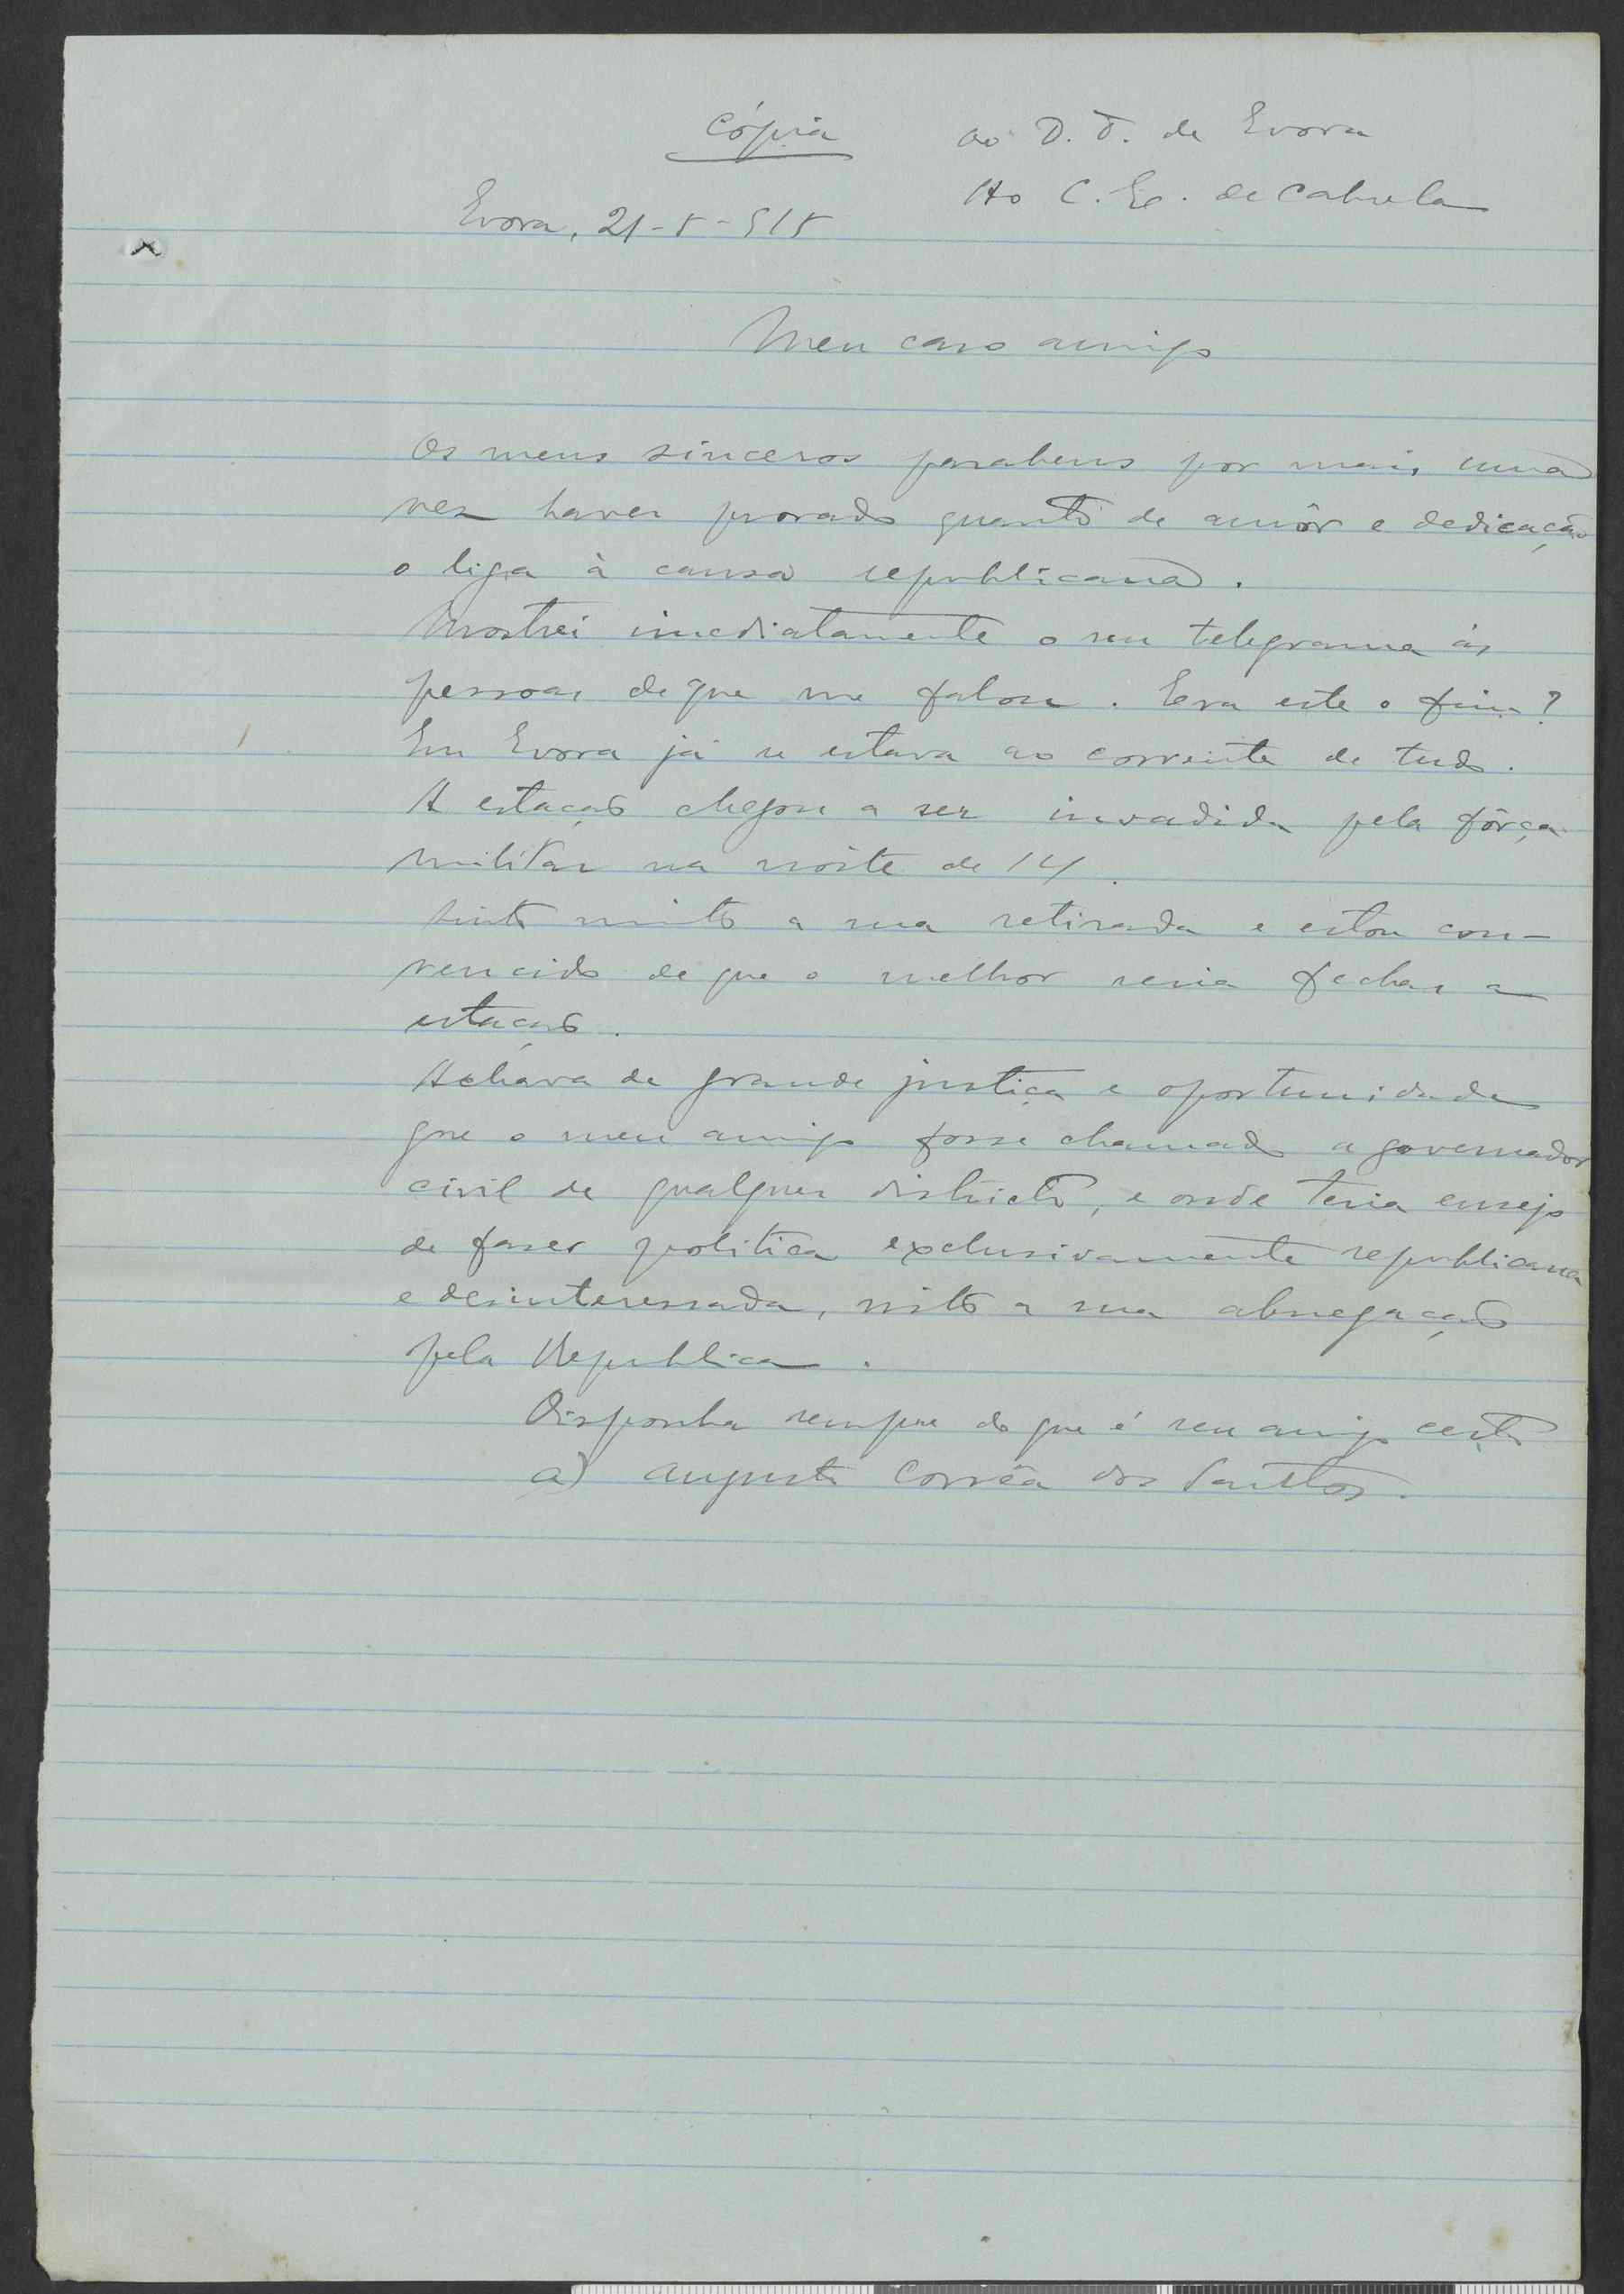 Cópia
ao D. T. de Evora
Ao C. E. de Cabrela
Evora, 21-5-915
Meu caro amigo
Os meus sinceros parabens por mais uma
vez haver provado quanto de amôr e dedicação
o liga à causa republicana.
Mostrei imediatamente o seu telegrama ás
pessoas de que me falou. Era este o fim?
Em Evora já se estava ao corrente de tudo.
A estação chegou a ser invadida pela fôrça
militar na noite de 14.
Sinto muito a sua retirada e estou con-
vencido de que o melhor seria fechar a
estação.
Achava de grande justiça e oportunidade
que o meu amigo fosse chamado a governador
civil de qualquer districto, e onde teria ensejo
de faser politica exclusivamente republicana
e desinteressada, visto a sua abnegação
pela Republica.
Disponha sempre do que é seu amigo certo
a) Augusto Corrêa dos Santos.